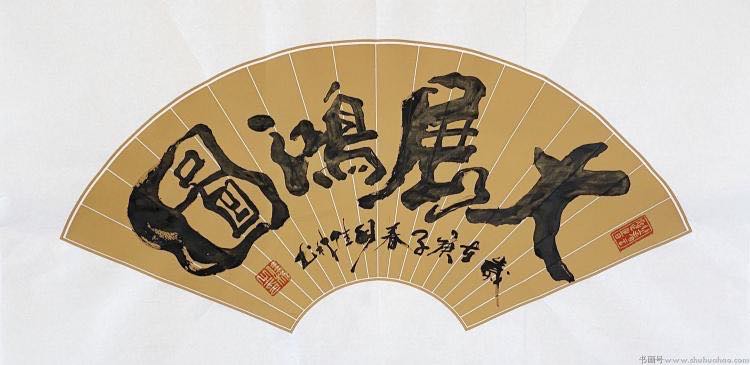 大展鴻圖
歲在庚子春月
书画号www.shuhuahao.com